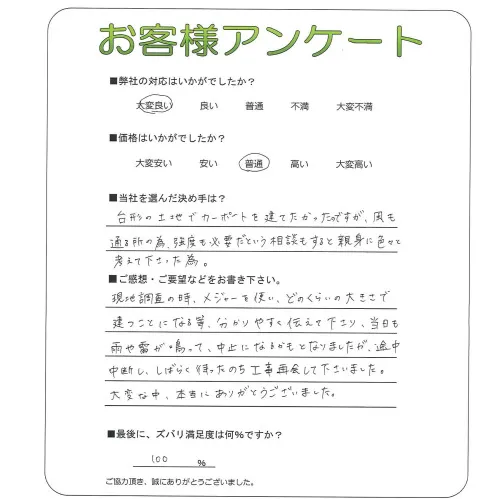 お客様アンケート
■弊社の対応はいかがでしたか？
大変良い 良い 普通 不満 大変不満
■価格はいかがでしたか？
大変安い 安い 普通 高い 大変高い
■当社を選んだ決め手は？
台形の土地でカーポートを建てたかったのですが、風も
通る所の為、強度も必要だという相談もすると親身に色々と
考えて下さった為。
■ご感想・ご要望などをお書き下さい。
現地調査の時、メジャーを使い、どのくらいの大きさで
建つことになる等、分かりやすく伝えて下さり、当日も
雨や雷が鳴って、中止になるかもとなりましたが、途中
中断し、しばらく待ったのち工事再会して下さいました。
大変な中、本当にありがとうございました。
■最後に、ズバリ満足度は何％ですか？
100 ％
ご協力頂き、誠にありがとうございました。